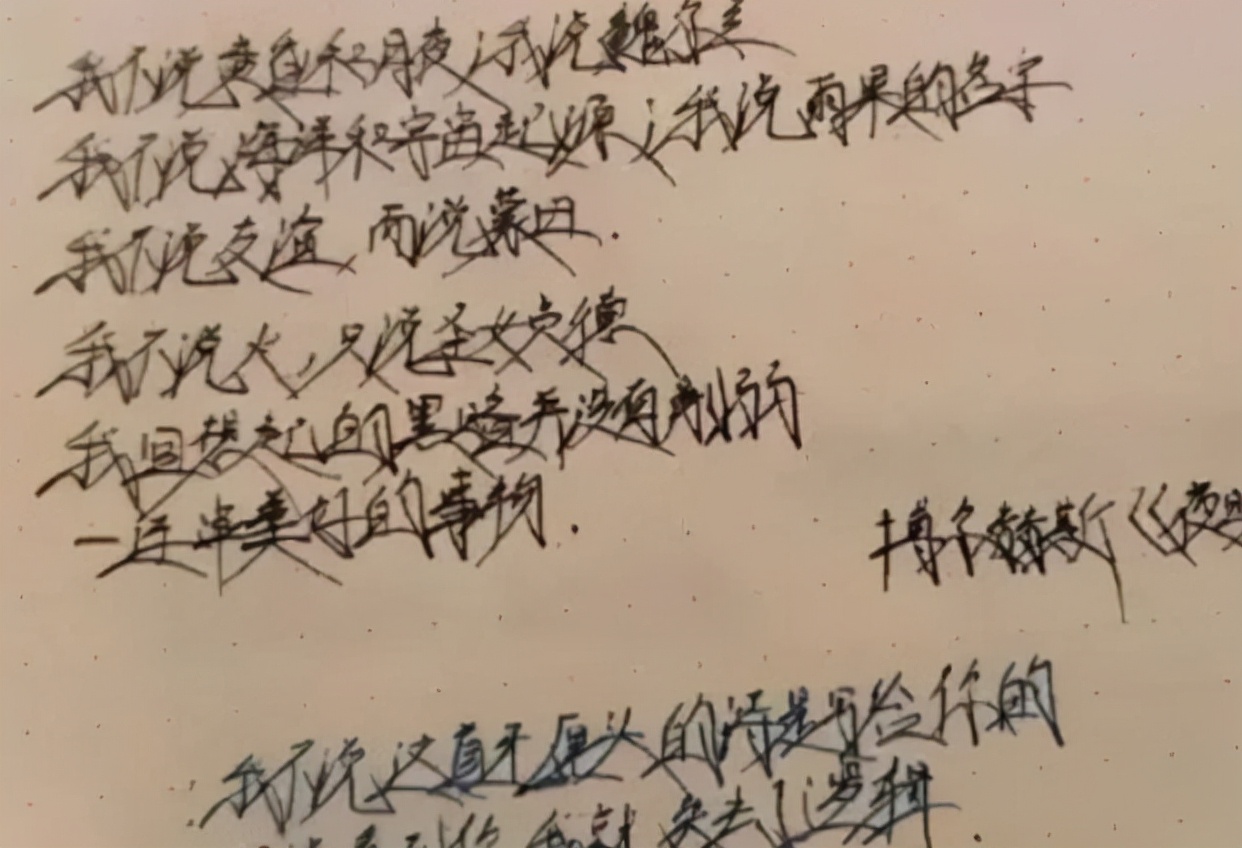 我不说黄色和月夜；我说魏尔兰
我不说海洋和宇宙起源；我说雨果的名字
我不说友谊，而说蒙田.
我不说火，只说圣女贞德
我回想起的黑暗并没有削弱
一连串美好的事物.
博尔赫斯《夜
我不说这直牙原头的诗是写给你的
我就失去了逻辑.